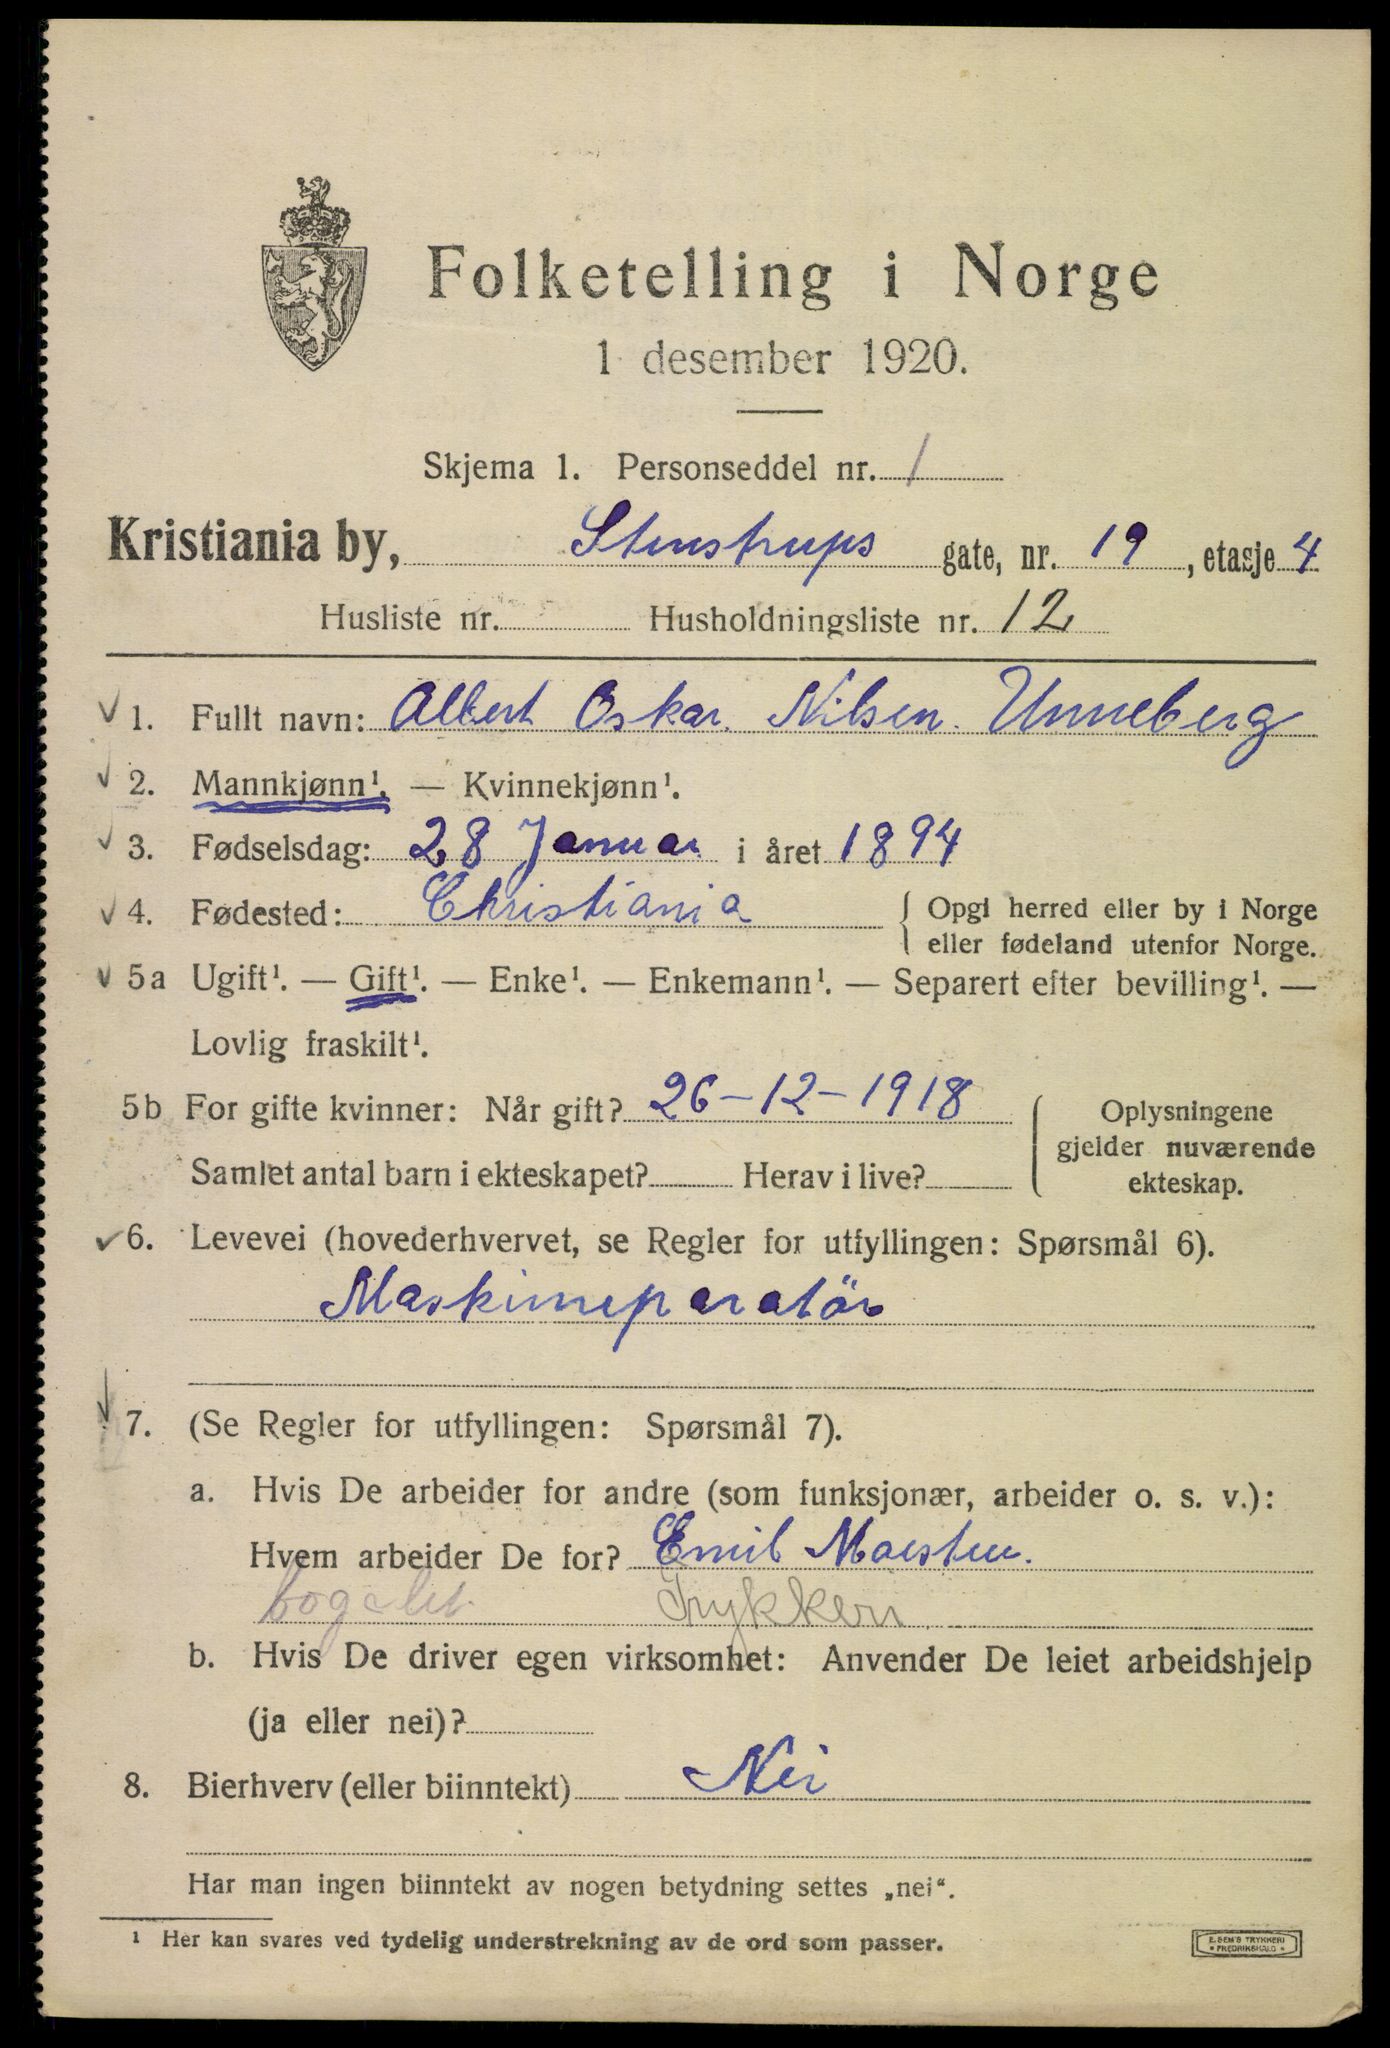 Folketelling i Norge
1 desember 1920.
Skjema 1. Personseddel nr. 1
Kristiania by, Stenstrups gate, nr. 19, etasje 4
Husliste nr. Husholdningsliste nr. 12
1. Fullt navn: Albert Oskar. Nilsen. Unneberg
2. Mannkjønn¹. — Kvinnekjønn¹.
3. Fødselsdag: 28 Januar i året 1894
4. Fødested: Christiania { Opgi herred eller by i Norge
eller fødeland utenfor Norge.
5a Ugift¹. — Gift¹. — Enke¹. — Enkemann¹. — Separert efter bevilling¹. —
Lovlig fraskilt¹.
5b For gifte kvinner: Når gift? 26-12-1918
Samlet antal barn i ekteskapet? Herav i live?
{ Oplysningene
gjelder nuværende
ekteskap.
6. Levevei (hovederhvervet, se Regler for utfyllingen: Spørsmål 6).
Maskinreparatör
7. (Se Regler for utfyllingen: Spørsmål 7).
a. Hvis De arbeider for andre (som funksjonær, arbeider o. s. v.):
Hvem arbeider De for? Emil Moestue.
Trykkeri
b. Hvis De driver egen virksomhet: Anvender De leiet arbeidshjelp
(ja eller nei)?
8. Bierhverv (eller biinntekt) Nei
Har man ingen biinntekt av nogen betydning settes „nei“.
¹ Her kan svares ved tydelig understrekning av de ord som passer.
E. SEM'S TRYKKERI
* FREDRIKSHALD *